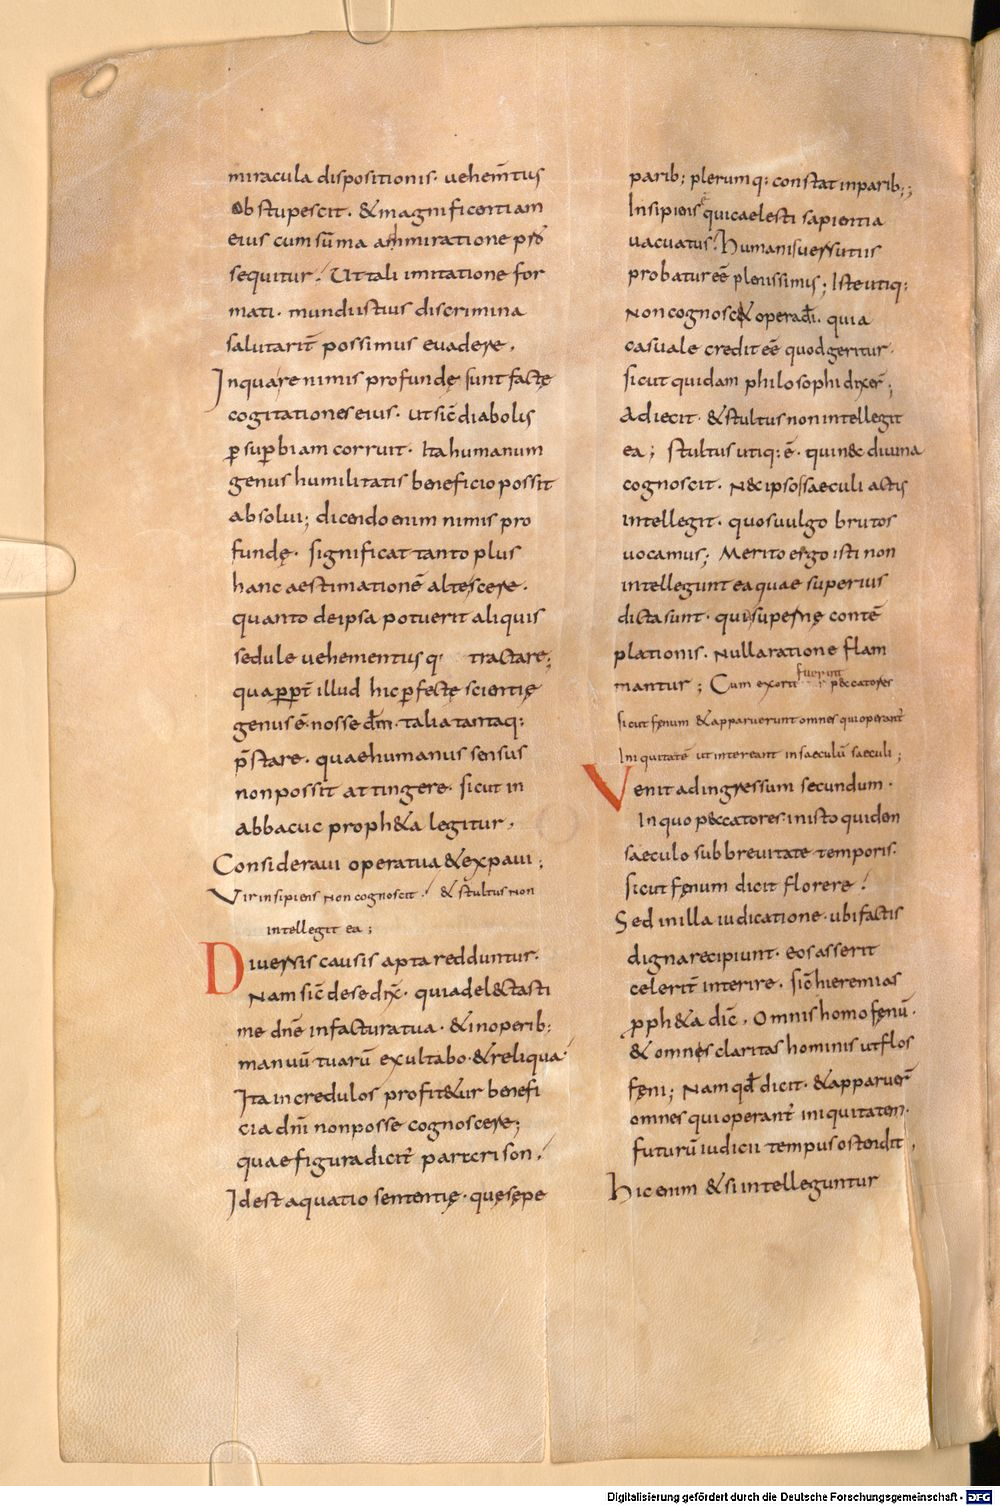 miracula dispositionis· uehem̅tius
obstupescit· &magnificentiam
eius cum sūma ammiratione pro
sequitur· Uttali imitatione for
mati· mundi istius discrimina
salutarit̅ possimus euadere·
Inquare nimis profundę sunt factę
cogitationes eius· ut sic̅ diabolis
ꝑ suꝑbiam corruit· Ita humanum
genus humilitatis beneficio possit
absolui; dicendo enim nimis pro
fundę· significat tanto plus
hanc aestimationē altescere·
quanto deipsa potuerit aliquis
sedule uehementius q· tractare;
quaꝓpt̅ illud hic ꝑfectę scientię
genus ē· nosse dm̅· talia tantaq:
p̅stare· quae humanus sensus
non possit attingere· sicut in
abbacuc proph&a legitur·
Consideraui opera tua &expaui;
Vir insipiens non cognoscit· & stultus non
intellegit ea;
Diuersis causis apta redduntur·
Nam sic̅ de se dix̅· quia del&tasti
me dn̅e in factura tua· &in operib:
manuū tuarū exultabo· &reliqua·
Ita incredulos profit&ur benefi
cia dn̅i non posse cognoscere;
quae figura dicit̅ parıcrison·
Id est aquatio sententię· quę sępe
parib; plerumq: constat inparib;;
Insipiens qui caelesti sapientia
uacuatus· Humanis uersutiis
probatur eē plenissimus; Iste utiq:
Non cognosc& opera dı̅· quia
casuale credit eē quod geritur·
sicut quidam philosophi dixer̅;
Adiecit· &stultus non intellegit
ea; Stultus utiq: ē· qui n&c diuina
cognoscit· N&c ipsos saeculi actus
intellegit· quos uulgo brutos
uocamus; Merito ergo isti non
intellegunt ea quae superius
dicta sunt· qui supernę contē
plationis· Nulla ratione flam
mantur; Cum exorti fuerint p&ccatores
sicut fęnum &apparuerunt omnes qui operant̅
Iniquitatē ut intereant in saeculū saeculi;
Venit ad ingressum secundum·
In quo p&ccatores· in isto quidem
saeculo sub breuitate temporis·
sicut fęnum dicit florere·
Sed in illa iudicatione· ubi factis
digna recipiunt· eos asserit
celerit̅ interire· sic̅ hieremias
ꝓph&a dic̅· Omnis homo fęnū·
& omnes claritas hominis ut flos
fęni; Nam qđ dicit· &apparuer̅
omnes qui operant̅ iniquitatem·
futurū iudicii tempus ostendit·
Hic enim &si intelleguntur
Digitalisierung gefördert durch die Deutsche Forschungsgemeinschaft - DFG